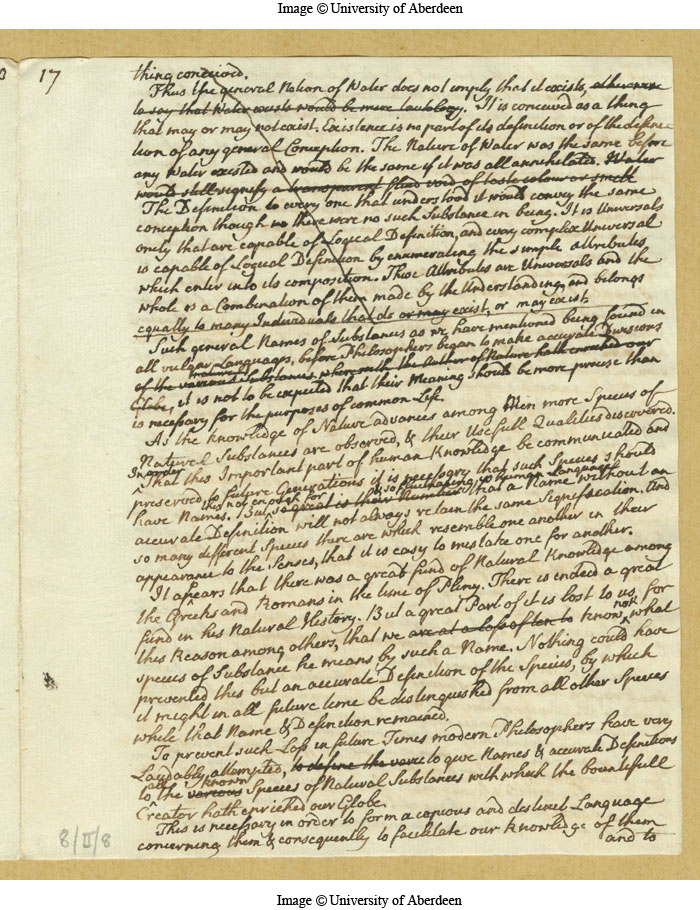 Image © University of Aberdeen
17
thing conceived.
Thus the general Notion of Water does not imply that it exists, otherwise
to say that Water exists would be mere tautology. It is conceived as a thing
that may or may not exist. Existence is no part of its definition or of the defini-
tion of any general Conception. The Nature of Water was the same before
any Water existed and would be the same if it was all annehilated. Water
would still signify a transparent fluid void of taste colour or smell
The Definition to every one that understood it would convey the same
conception though no there were no such Substance in being. It is Universals
onely that are capable of Logical Definition, and every complex Universal
is capable of Logical Definition by enumerating the simple attributes
which enter into its composition. Those Attributes are Universals and the
whole is a Combination of them made by the Understanding, and belongs
equally to many Individuals that do or may exist, or may exist.
Such general Names of Substances as we have mentioned being found in
all vulgar Languages, before Philosophers began to make accurate Divisions
of the various Substances wherewith the Author of Nature hath enriched our
Globe, it is not to be expected that their Meaning should be more precise than
is necessary for the purposes of common Life.
As the Knowledge of Nature advances among Men more Species of
Natural Substances are observed, & their Usefull Qualities discovered.
In order
That this Important part of human Knowledge be communicated and
preserved to future Generations it is necessary that such Species should
have Names. But so great is their Number that a Name without an
accurate Definition will not always retain the same Signification. And
so many different Species there are which resemble one another in their
appearance to the Senses, that it is easy to mistake one for another.
It apears that there was a great fund of Natural Knowledge among
the Greeks and Romans in the time of Pliny. There is indeed a great
fund in his Natural History. But a great Part of it is lost to us, for
this Reason among others, that we are at a loss often to know not what
species of Substance he means by such a Name. Nothing could have
prevented this but an accurate Definition of the Species, by which
it might in all future time be distinguished from all other Species
while that Name & Definition remained.
To prevent such Loss in future Times modern Philosophers have very
Laudably attempted, to define the vario to give Names & accurate Definitions
all known
to the various Species of Natural Substances with which the bountifull
Creator hath enriched our Globe.
This is necessary in order to form a copious and distinct Language
concerning them & consequently to facilitate our Knowledge of them
and to
8/II/8
Image © University of Aberdeen